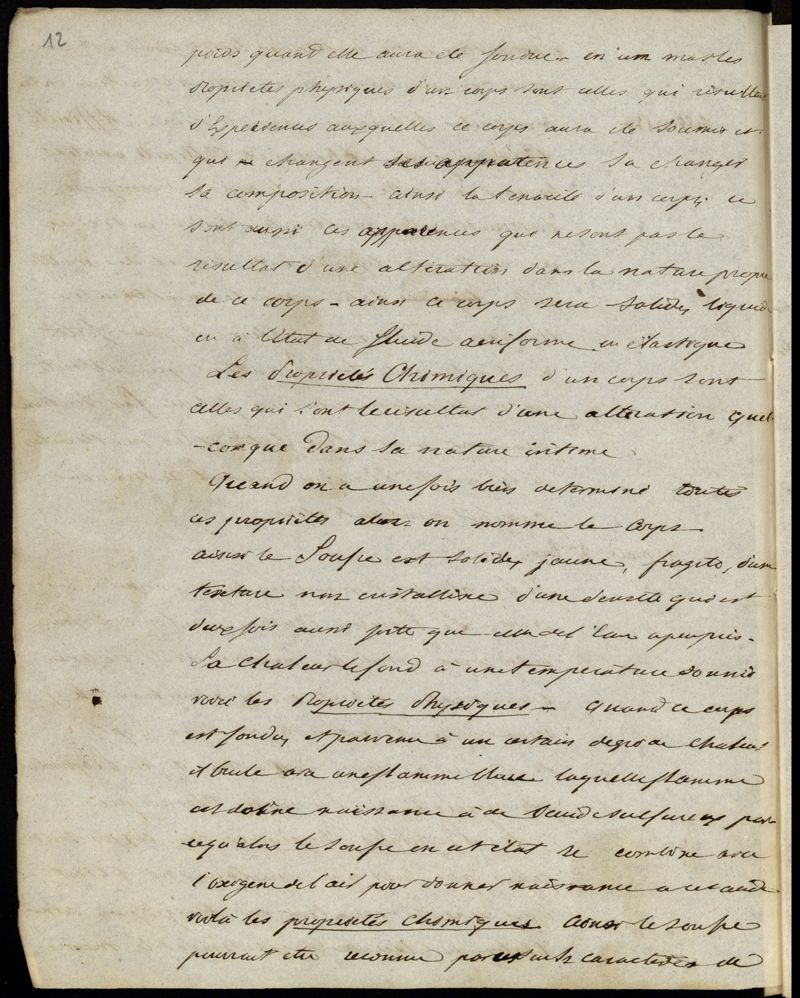 12
poids quand elle aura été fondue - en un mot les
Propriétés physiques d'un corps sont celles qui resultent
d'Experiences auxquelles ce corps aura été soumis et
qui changent apparences sa changer
sa composition - ainsi la tenacité d'un corps, ce
sont aussi ces apparences qui ne sont pas le
resultat d'une alteration dans la nature propre
de ce corps - ainsi ce corps sera solide, liquide
ou à l'état de fluide aeriforme ou élastique
Les Propriétés Chimiques d'un corps sont
celles qui sont le resultat d'une alteration quel-
-conque dans sa nature intime
Quand on a une fois bien determiné toutes
ces propriétés alors on nomme le corps
ainsi le Soufre est solide, jaune, fragile, d'une
texture non cristalline d'une densité qui est
deux fois aussi forte que celle de l'Eau apeuprès -
La chaleur le fond à une temperature donnée
voici les Propriétés Physiques - Quand ce corps
est fondu, et parvenu à un certain degré de chaleur
il brule avec une flamme bleue laquelle flamme
donne naissance à de l'acide sulfureux par-
cequ'alors le soufre en cet état se combine avec
l'oxigene de l'air pour donner naissance a cet acide
voilà les propriétés chimiques ainsi le soufre
pourrait etre reconnu par caractères de